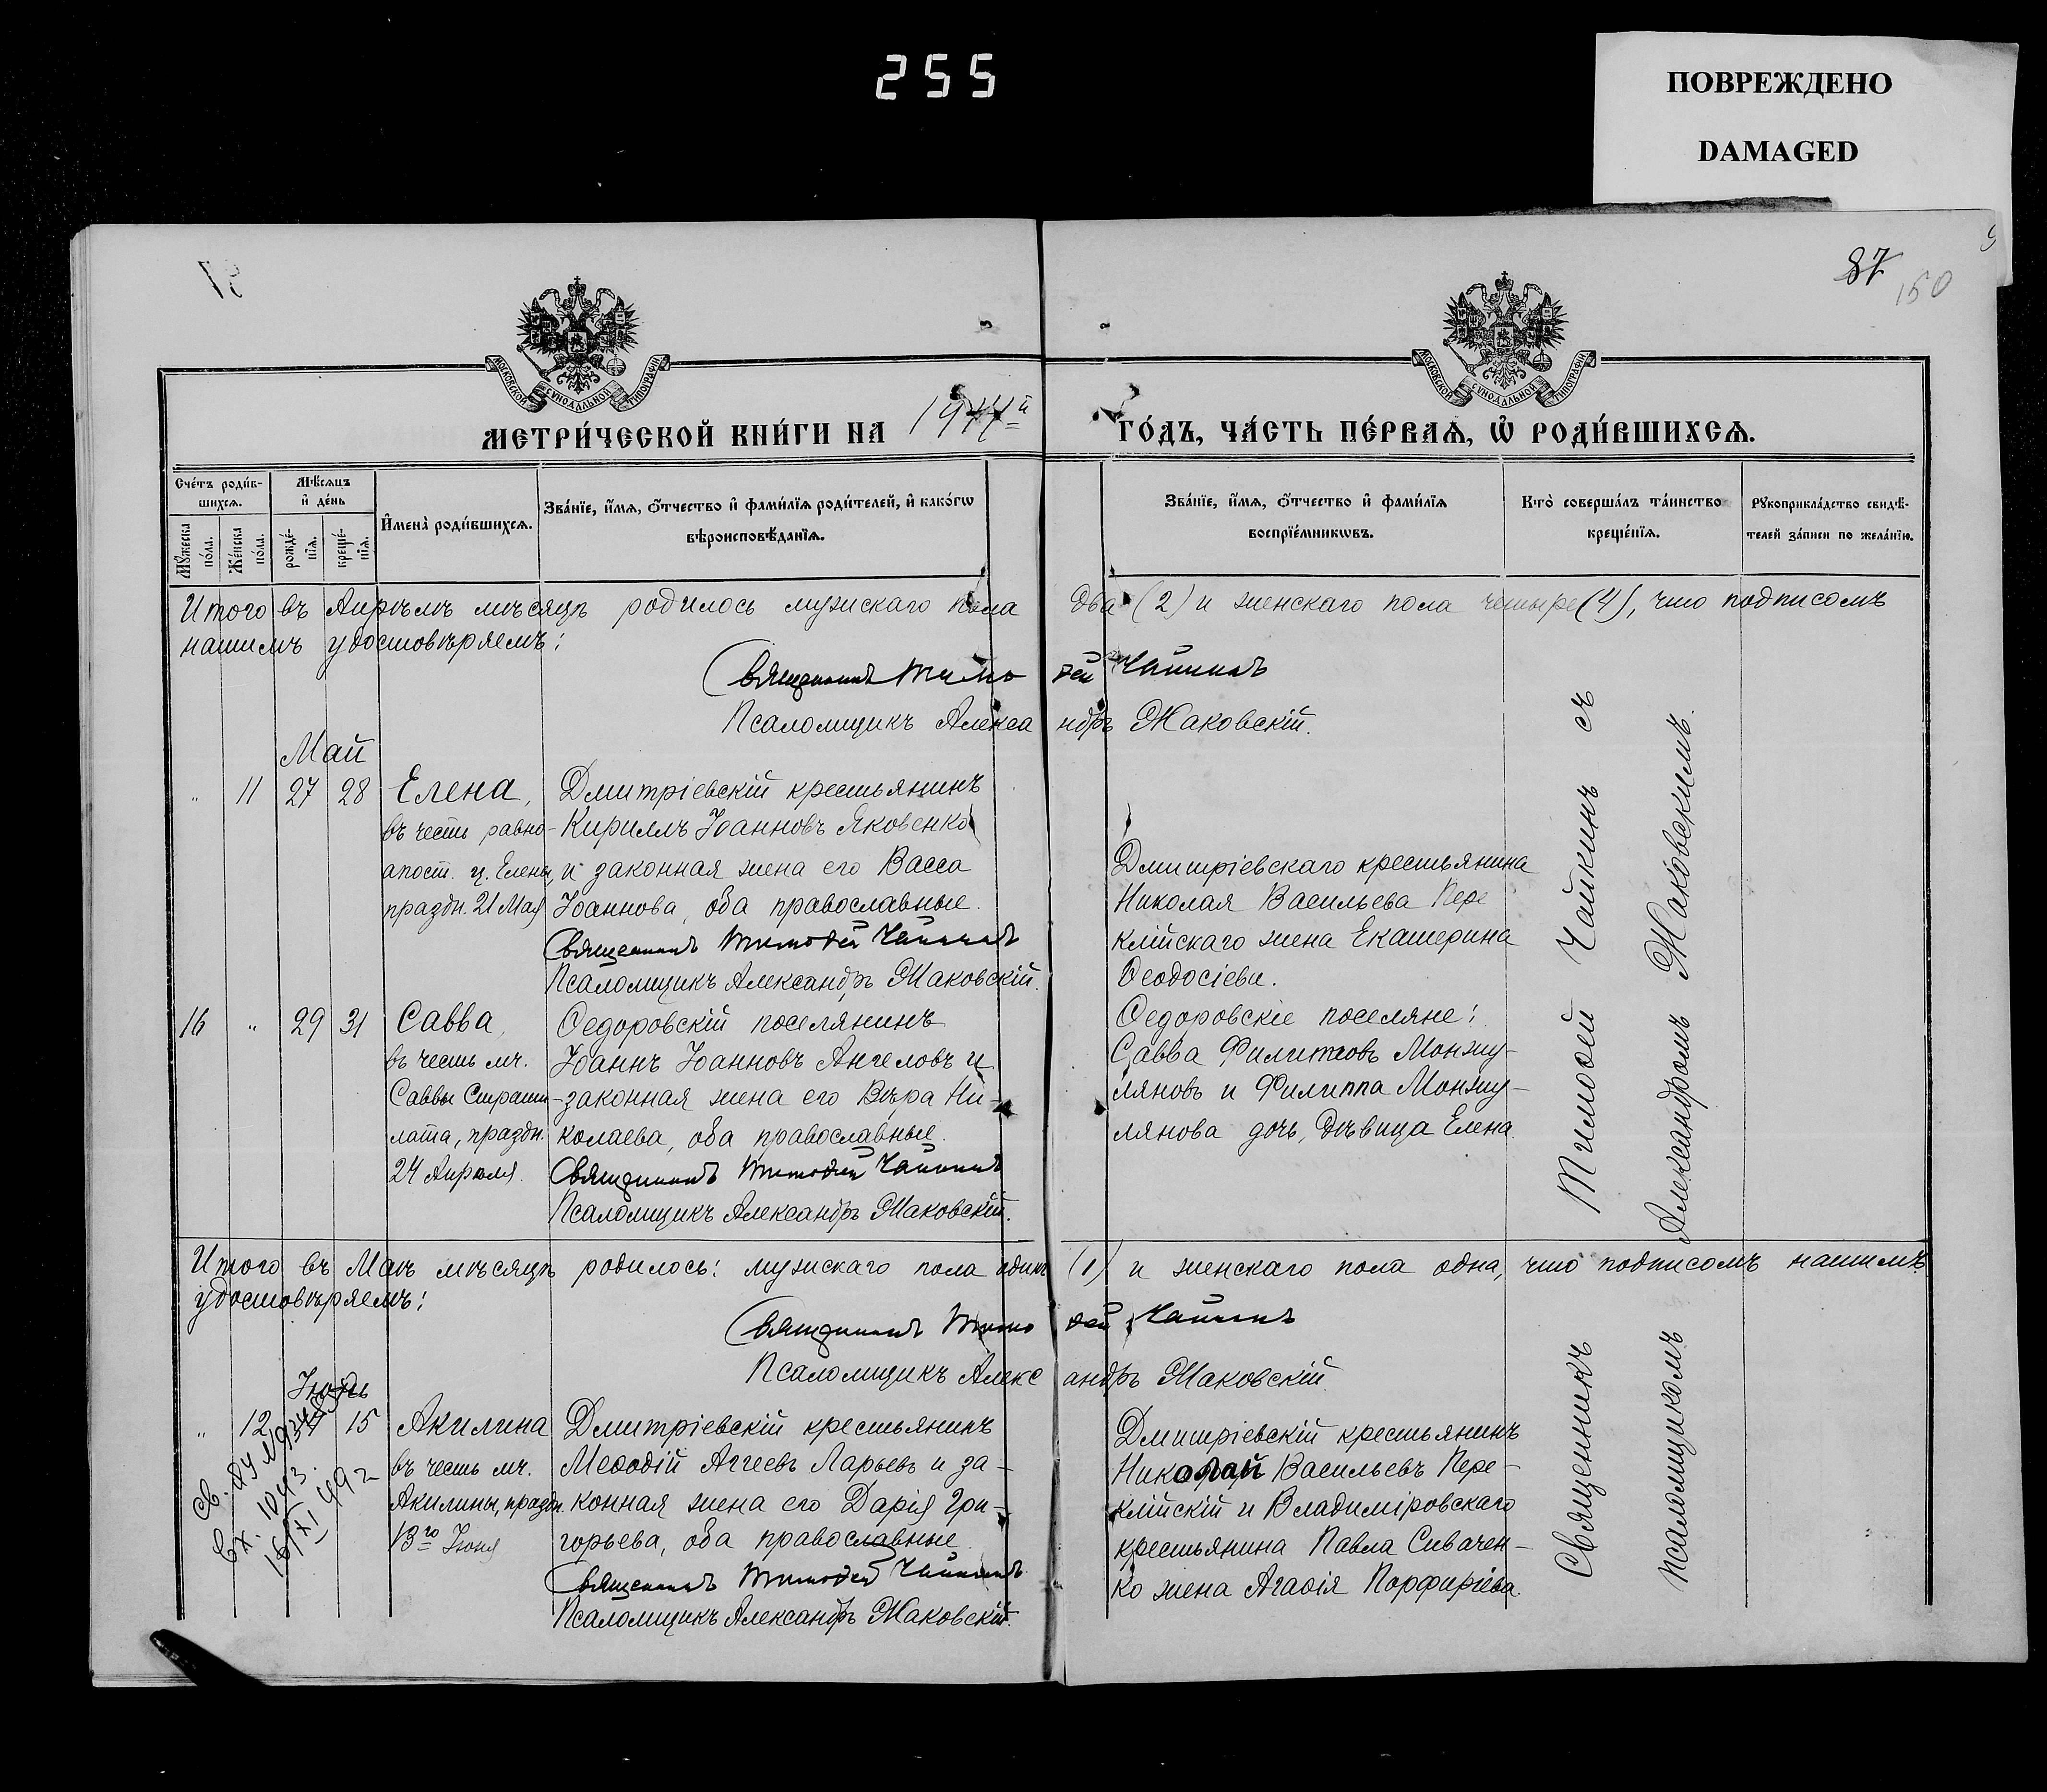 255
ПОВРЕЖДЕНО
DAMAGED
87
150
МОСКОВСКОЙ СУНОДАЛЬНОЙ ТИПОГРАФІИ
МОСКОВСКОЙ СУНОДАЛЬНОЙ ТИПОГРАФІИ
МЕТРИ́ЧЕСКОЙ КНИ́ГИ НА
ГО́ДЪ, ЧА́СТЬ ПЕ́РВАѦ, Ѡ҆ РОДИ́ВШИХСѦ.
Сче́тъ роди́в-
шихсѧ.
Мꙋ́жеска
по́ла.
Же́нска
по́ла.
Мѣ́сѧцъ
и҆ де́нь
рожде́-
нїѧ.
креще́-
нїѧ.
И҆мена̀ роди́вшихсѧ.
Зва́нїе, и҆́мѧ, ѻ҆́тчество и҆ фами́лїѧ роди́телей, и҆ како́гѡ
вѣроисповѣ́данїѧ.
Зва́нїе, и҆́мѧ, ѻ҆́тчество и҆ фами́лїѧ
воспрїе́мникѡвъ.
Кто̀ соверша́лъ та́инство
креще́нїѧ.
Рꙋкоприкла́дство свидѣ́-
телей за́писи по жела́нїю.
Итого въ Апрѣлѣ мѣсяцѣ родилось мужскаго пола два (2) и женскаго пола четыре (4), что подписомъ
нашимъ удостовѣряемъ:
Священникъ Тимоѳей Чайкинъ
Псаломщикъ Александръ Жаковскій.
Май
" 11 27 28 Елена,
въ честь равно-
апост. ц. Елены,
праздн. 21 Мая
Дмитріевскій крестьянинъ
Кириллъ Іоанновъ Яковенко
и законная жена его Васса
Іоаннова, оба православные.
Священникъ Тимоѳей Чайкинъ
Псаломщикъ Александръ Жаковскій.
Дмитріевскаго крестьянина
Николая Васильева Пере
клійскаго жена Екатерина
Ѳеодосіева.
16 " 29 31 Савва,
въ честь мч.
Саввы Страти-
лата, праздн.
24 Апрѣля.
Ѳедоровскій поселянинъ
Іоаннъ Іоанновъ Ангеловъ и
законная жена его Вѣра Ни-
колаева, оба православные.
Священникъ Тимоѳей Чайкинъ
Псаломщикъ Александръ Жаковскій.
Ѳедоровскіе поселяне:
Савва Филиповъ Монжу-
ляновъ и Филиппа Монжу-
лянова дочь, дѣвица Елена.
Тимоѳей Чайкинъ съ
Александромъ Жаковскимъ.
Итого въ Маѣ мѣсяцѣ родилось: мужскаго пола одинъ (1) и женскаго пола одна, что подписомъ нашимъ
удостовѣряемъ:
Священникъ Тимоѳей Чайкинъ
Псаломщикъ Александръ Жаковскій.
" 12 15 Акилина
въ честь мч.
Акилины, праздн.
13го Іюня
Дмитріевскій крестьянинъ
Меѳодій Аггеевъ Ларьевъ и за-
конная жена его Дарія Гри-
горьева, оба православные.
Священникъ Тимоѳей Чайкинъ
Псаломщикъ Александръ Жаковскій.
Дмитріевскій крестьянинъ
Николай Васильевъ Пере-
клійскій и Владиміровскаго
крестьянина Павла Сивачен-
ко жена Агаѳія Порфиріева.
Священникъ
псаломщикомъ